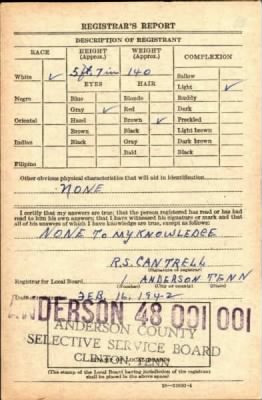 REGISTRAR'S REPORT
DESCRIPTION OF REGISTRANT
RACE HEIGHT (Approx.) WEIGHT (Approx.) COMPLEXION
White ✓ 5 ft 7 in 140 Sallow
EYES HAIR Light ✓
Negro Blue Blonde Ruddy
Gray ✓ Red Dark
Oriental Hazel Brown ✓ Freckled
Brown Black Light brown
Indian Black Gray Dark brown
Bald Black
Filipino
Other obvious physical characteristics that will aid in identification
NONE
I certify that my answers are true; that the person registered has read or has had
read to him his own answers; that I have witnessed his signature or mark and that
all of his answers of which I have knowledge are true, except as follows:
NONE TO MY KNOWLEDGE
R.S. CANTRELL
(Signature of registrar)
Registrar for Local Board 1 ANDERSON TENN
(Number) (City or county) (State)
Date of FEB. 16, 1942
ANDERSON 48 001 001
ANDERSON COUNTY
SELECTIVE SERVICE BOARD
CLINTON, TENN
(STAMP OF LOCAL BOARD)
(The stamp of the Local Board having jurisdiction of the registrant
shall be placed in the above space)